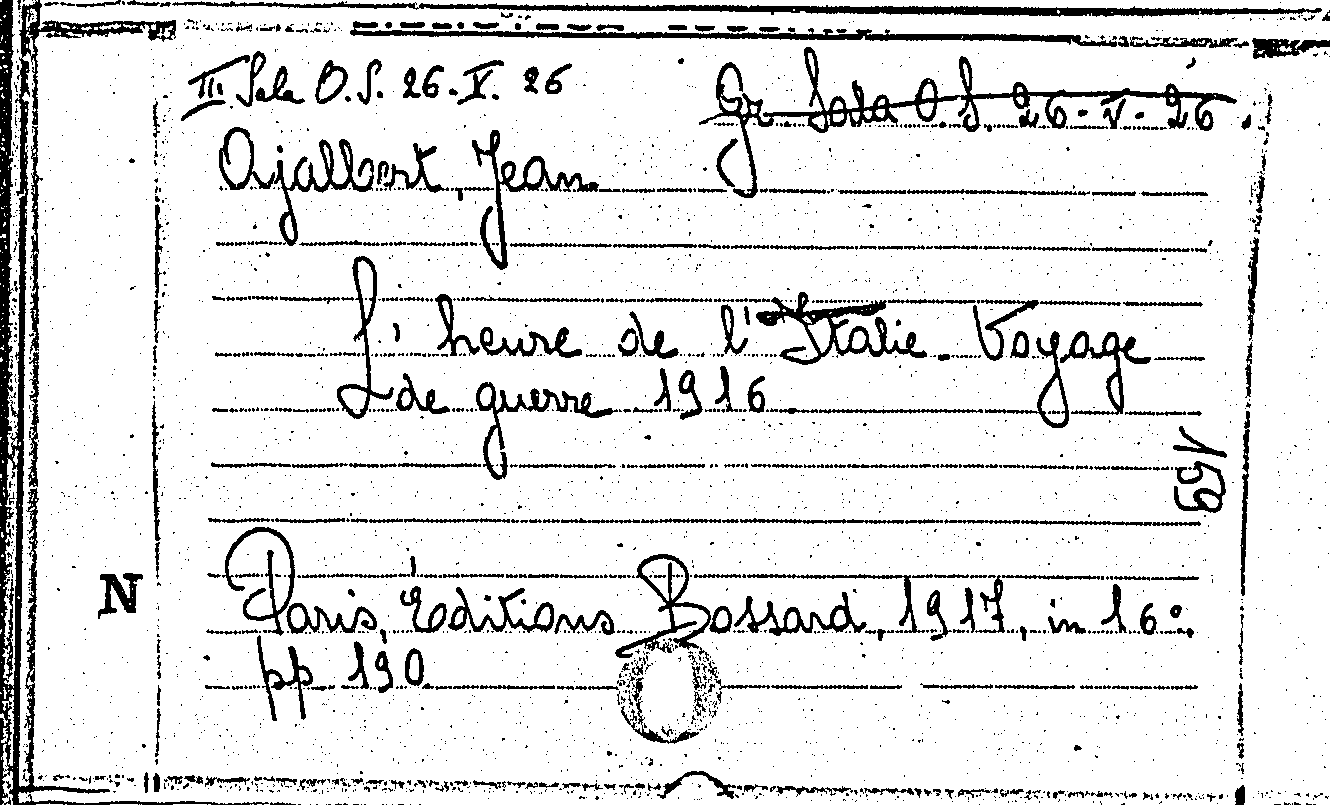 III Sala O.S. 26.V.26
Gr. Sala O.S. 26-V-26.
Ajalbert, Jean
L'heure de l'Italie. Voyage
de guerre 1916.
159
N
Paris, Éditions Bossard, 1917, in 16°.
pp 190